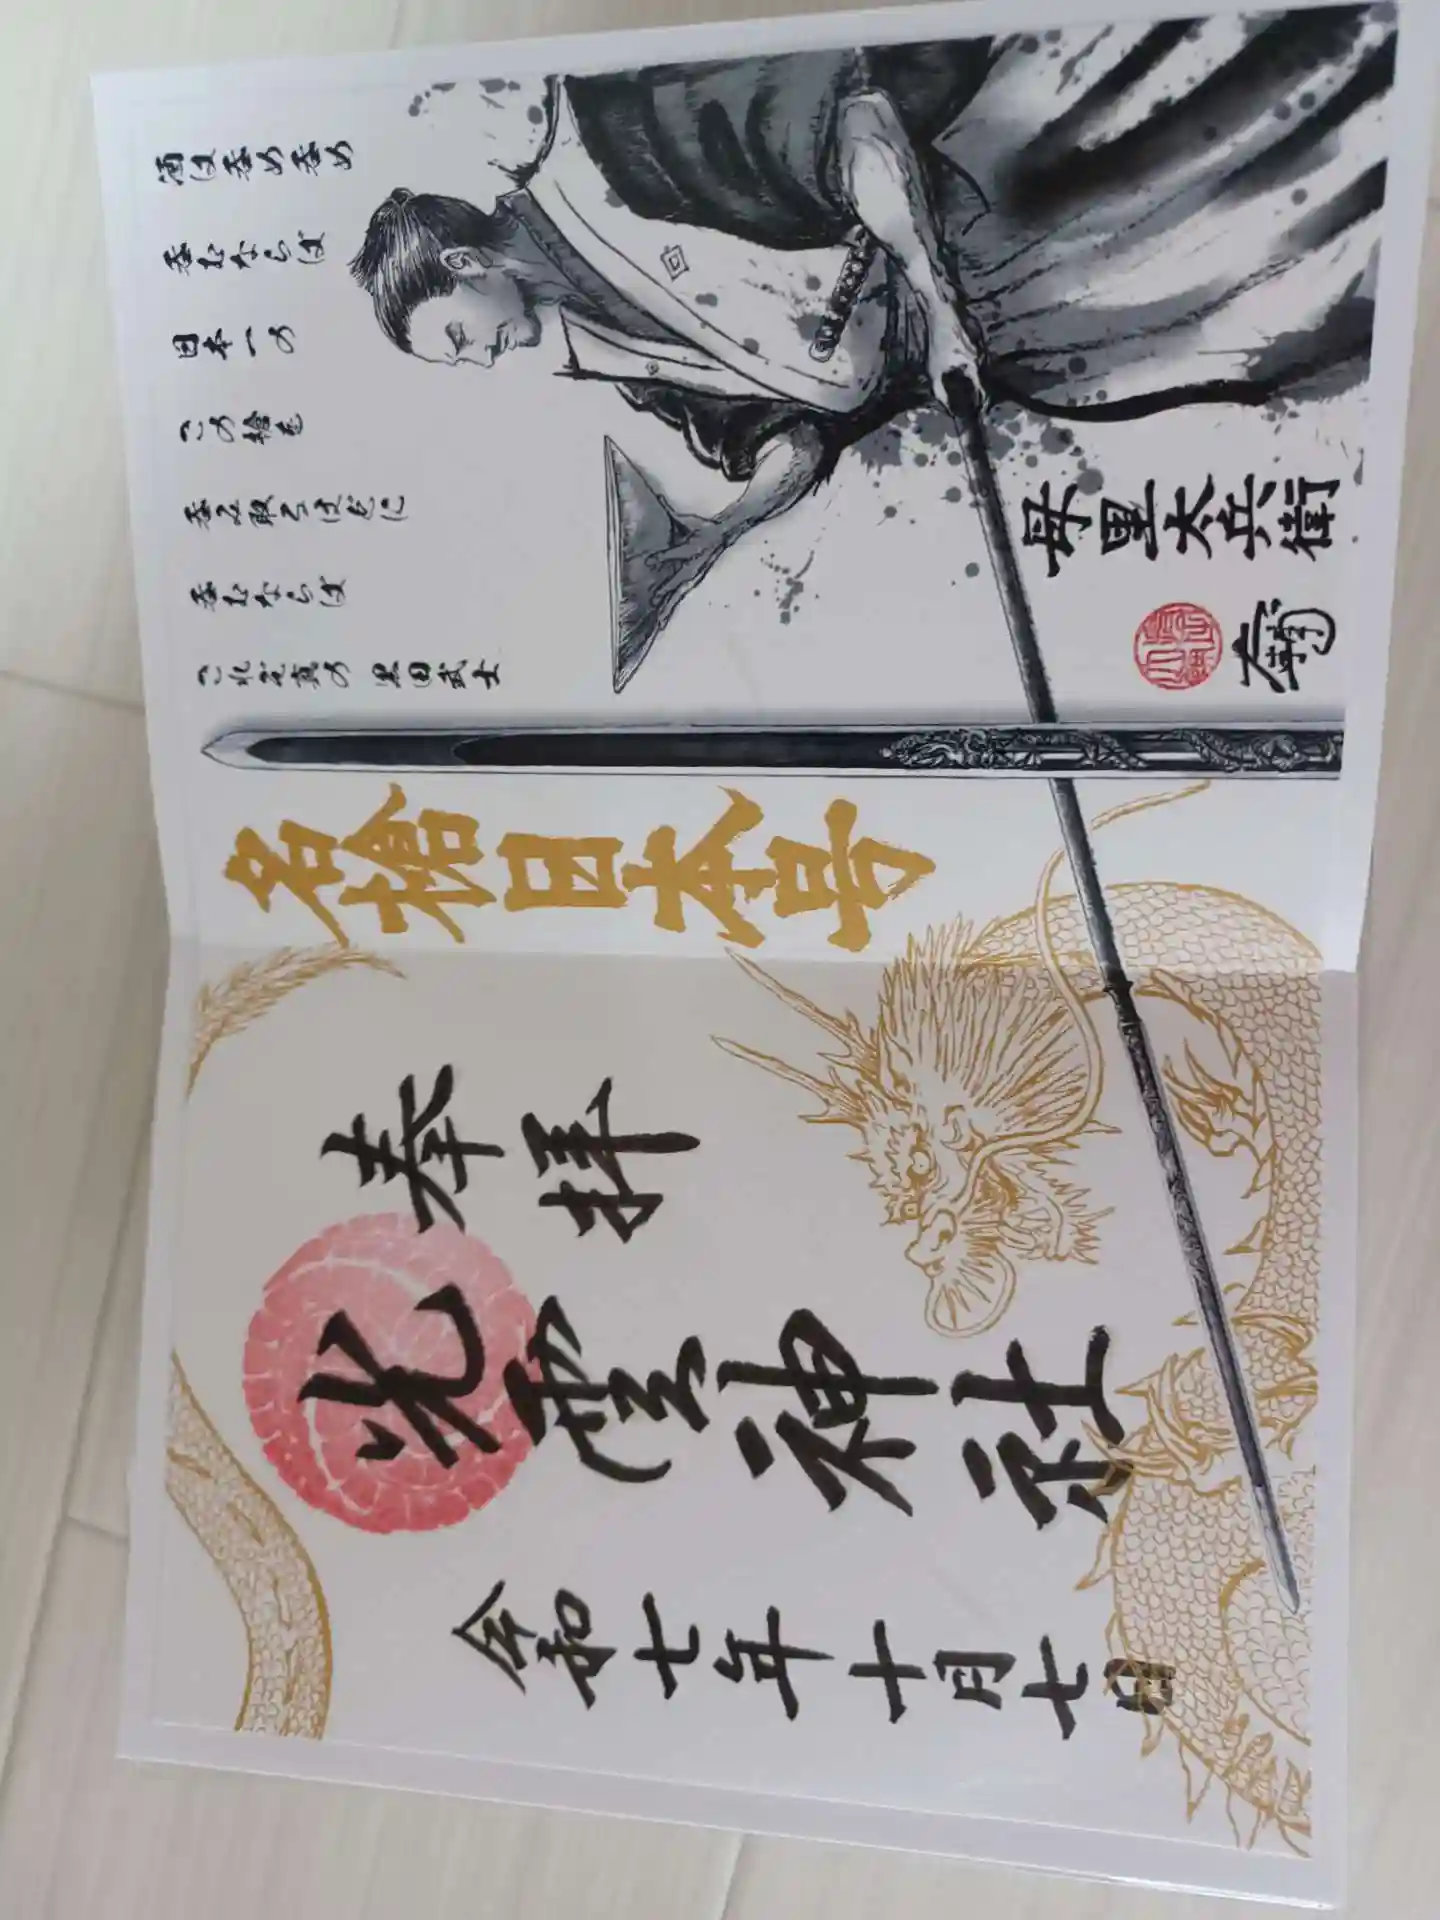 奉拝
光雲神社
令和七年十月七日
名槍日本号
酒は呑め呑め
呑むならば
日本一の
この槍を
呑み取るほどに
呑むならば
これぞ真の 黒田武士
母里太兵衛